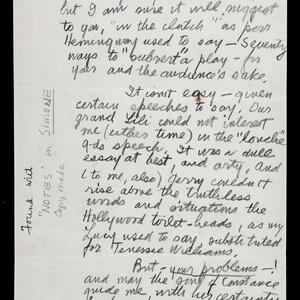 but I am sure it will suggest
to you, "in the clutch" as poor
Hemingway used to say – Seventy
ways to "subvert a play – for
you and the audience's sake.
It isn't easy – given
certain speeches to say. Our
grand Lili could not interest
me (either time) in the
g-do speech. It was a dull
essay at best, and arty, and
(to me, also) Gerry couldn't
rise above the truthless
words and situations the
Hollywood toilet-heads, as my
Lucy used to say substituted
for Tenessee Williams.
But – your problems –!
and may the
guide me, with her certainty
Found with
"NOTES" in SIMONE
Copy made